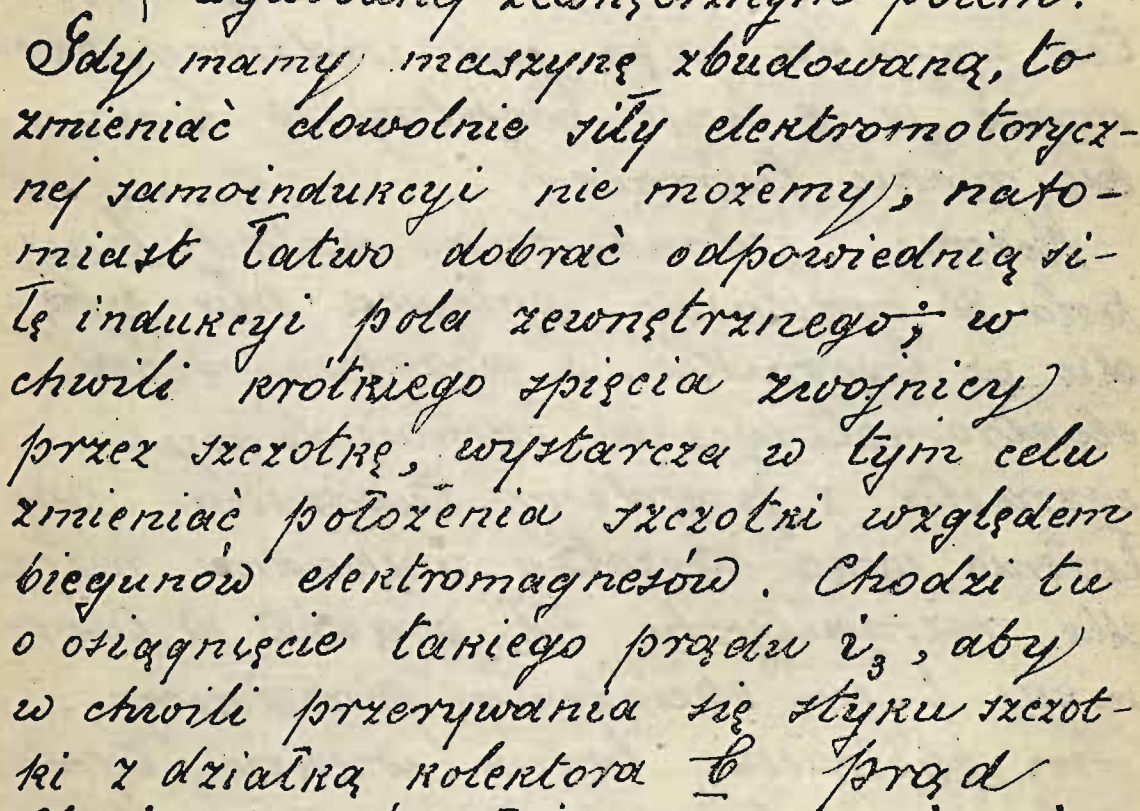 zewnętrznym polem.
Gdy mamy maszynę zbudowaną, to
zmieniać dowolnie siły elektromotorycz-
nej samoindukcyi nie możemy, nato-
miast łatwo dobrać odpowiednią si-
łę indukcyi pola zewnętrznego; w
chwili krótkiego spięcia zwojnicy
przez szczotkę, wystarcza w tym celu
zmieniać położenia szczotki względem
biegunów elektromagnesów. Chodzi tu
o osiągnięcie takiego prądu i₃, aby
w chwili przerywania się styku szczot-
ki z działką kolektora b prąd